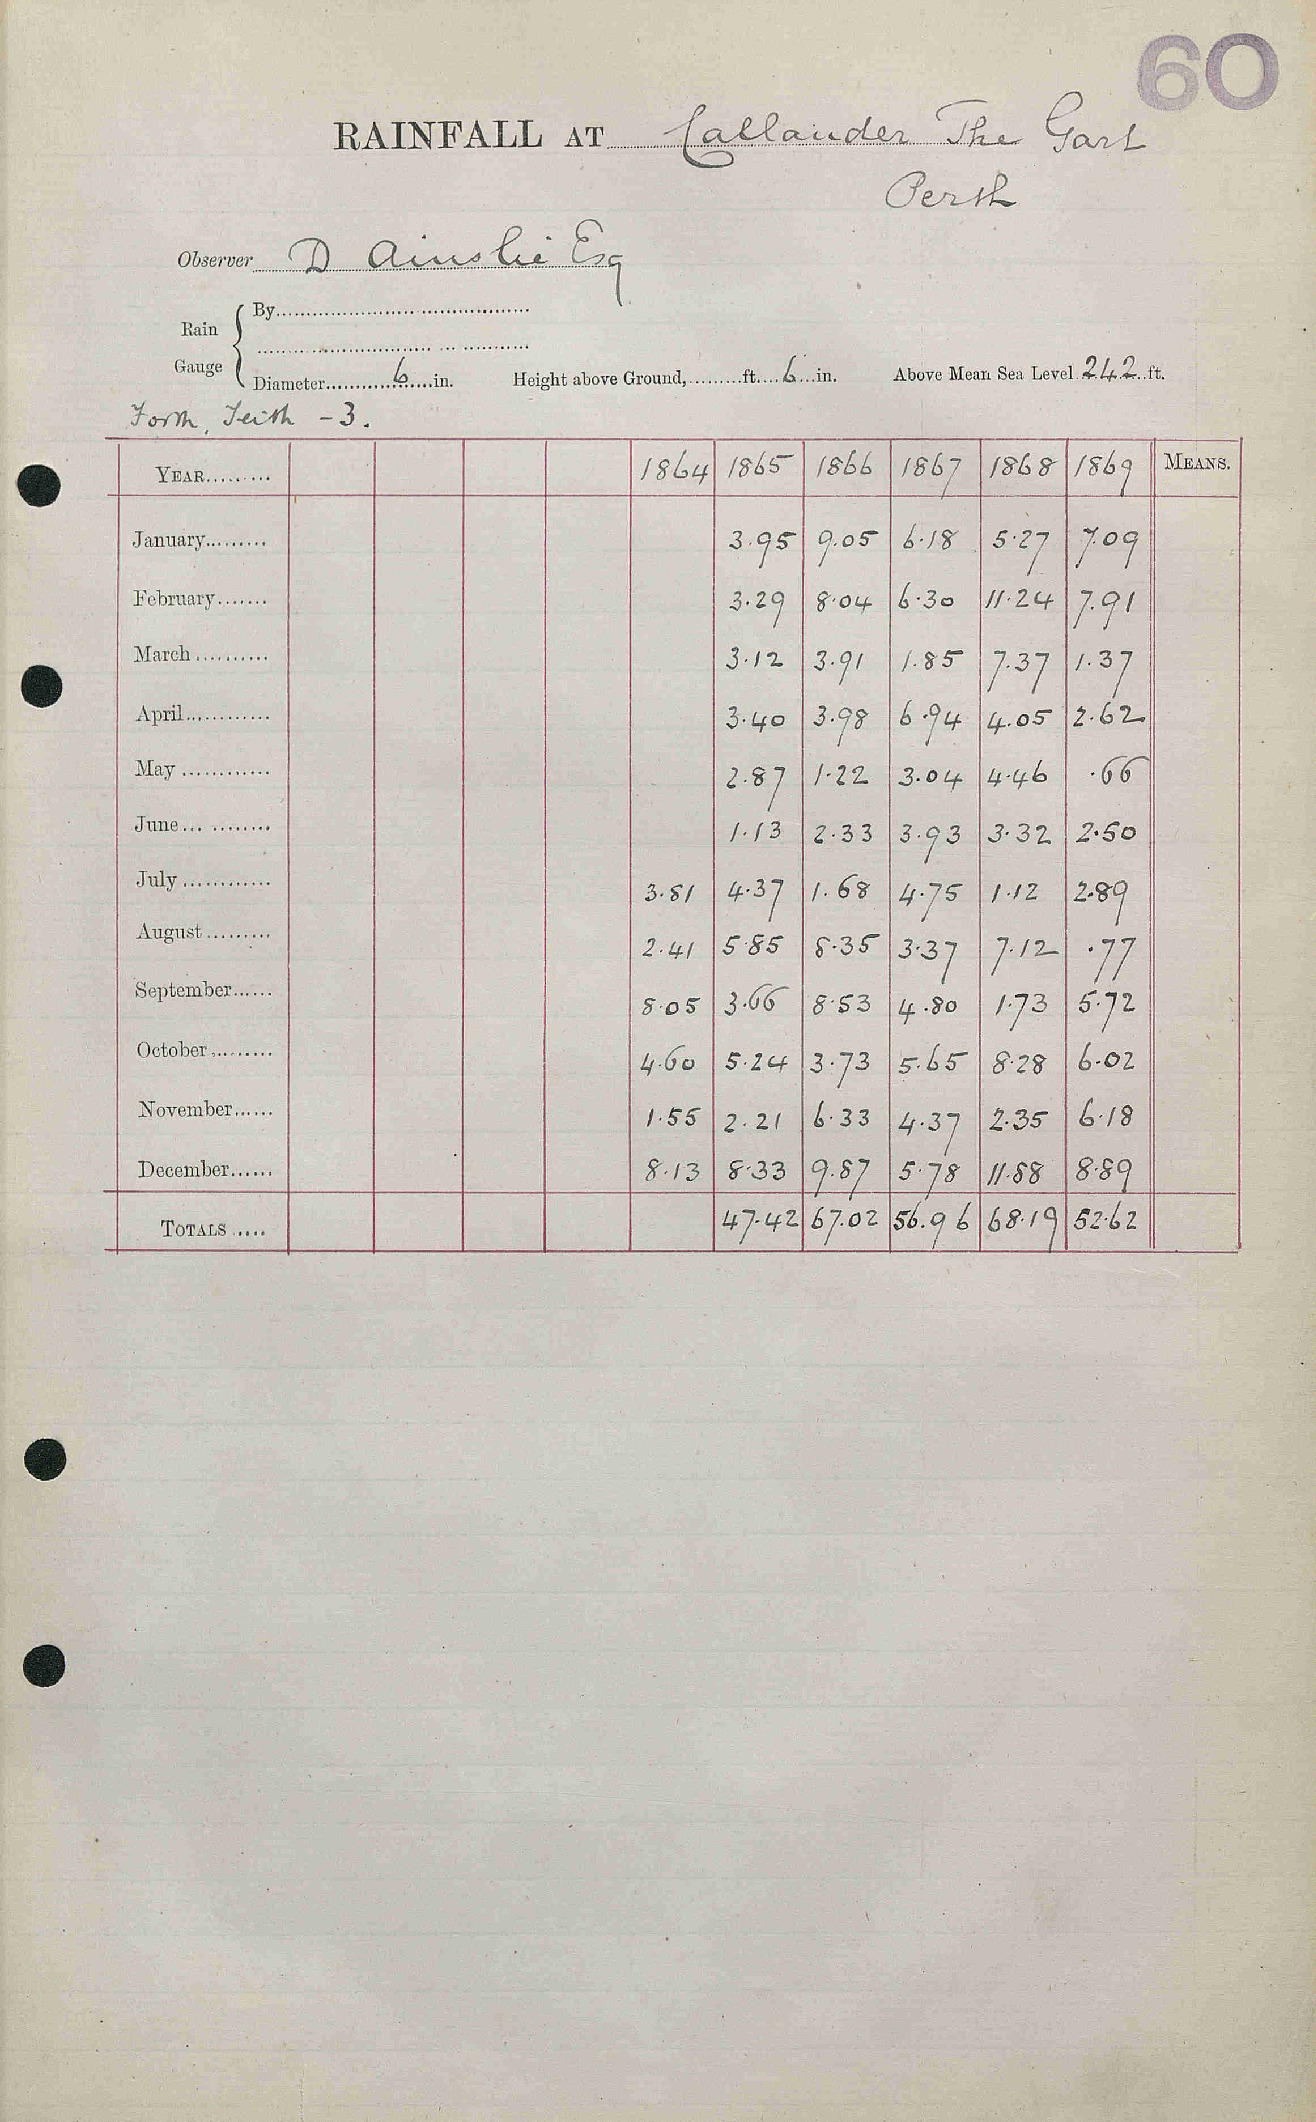 60
RAINFALL AT Callander The Gart
Perth
Observer D Ainslie Esq
Rain Gauge
By
Diameter 6 in. Height above Ground, ft. 6 in. Above Mean Sea Level 242 ft.
Forth, Teith - 3.
YEAR 1864 1865 1866 1867 1868 1869 MEANS.
January 3.95 9.05 6.18 5.27 7.09
February 3.29 8.04 6.30 11.24 7.91
March 3.12 3.91 1.85 7.37 1.37
April 3.40 3.98 6.94 4.05 2.62
May 2.87 1.22 3.04 4.46 .66
June 1.13 2.33 3.93 3.32 2.50
July 3.81 4.37 1.68 4.75 1.12 2.89
August 2.41 5.85 8.35 3.37 7.12 .77
September 8.05 3.66 8.53 4.80 1.73 5.72
October 4.60 5.24 3.73 5.65 8.28 6.02
November 1.55 2.21 6.33 4.37 2.35 6.18
December 8.13 8.33 9.87 5.78 11.88 8.89
TOTALS 47.42 67.02 56.96 68.19 52.62